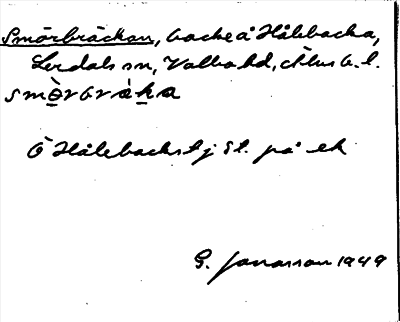 Smörbräckan, backe å Hålebacka,
Lerdals sn, Valbo hd, Älvsb. l.
smö̀rbràka
Ö Hålebackst j St. på ek
G. Jonasson 1949